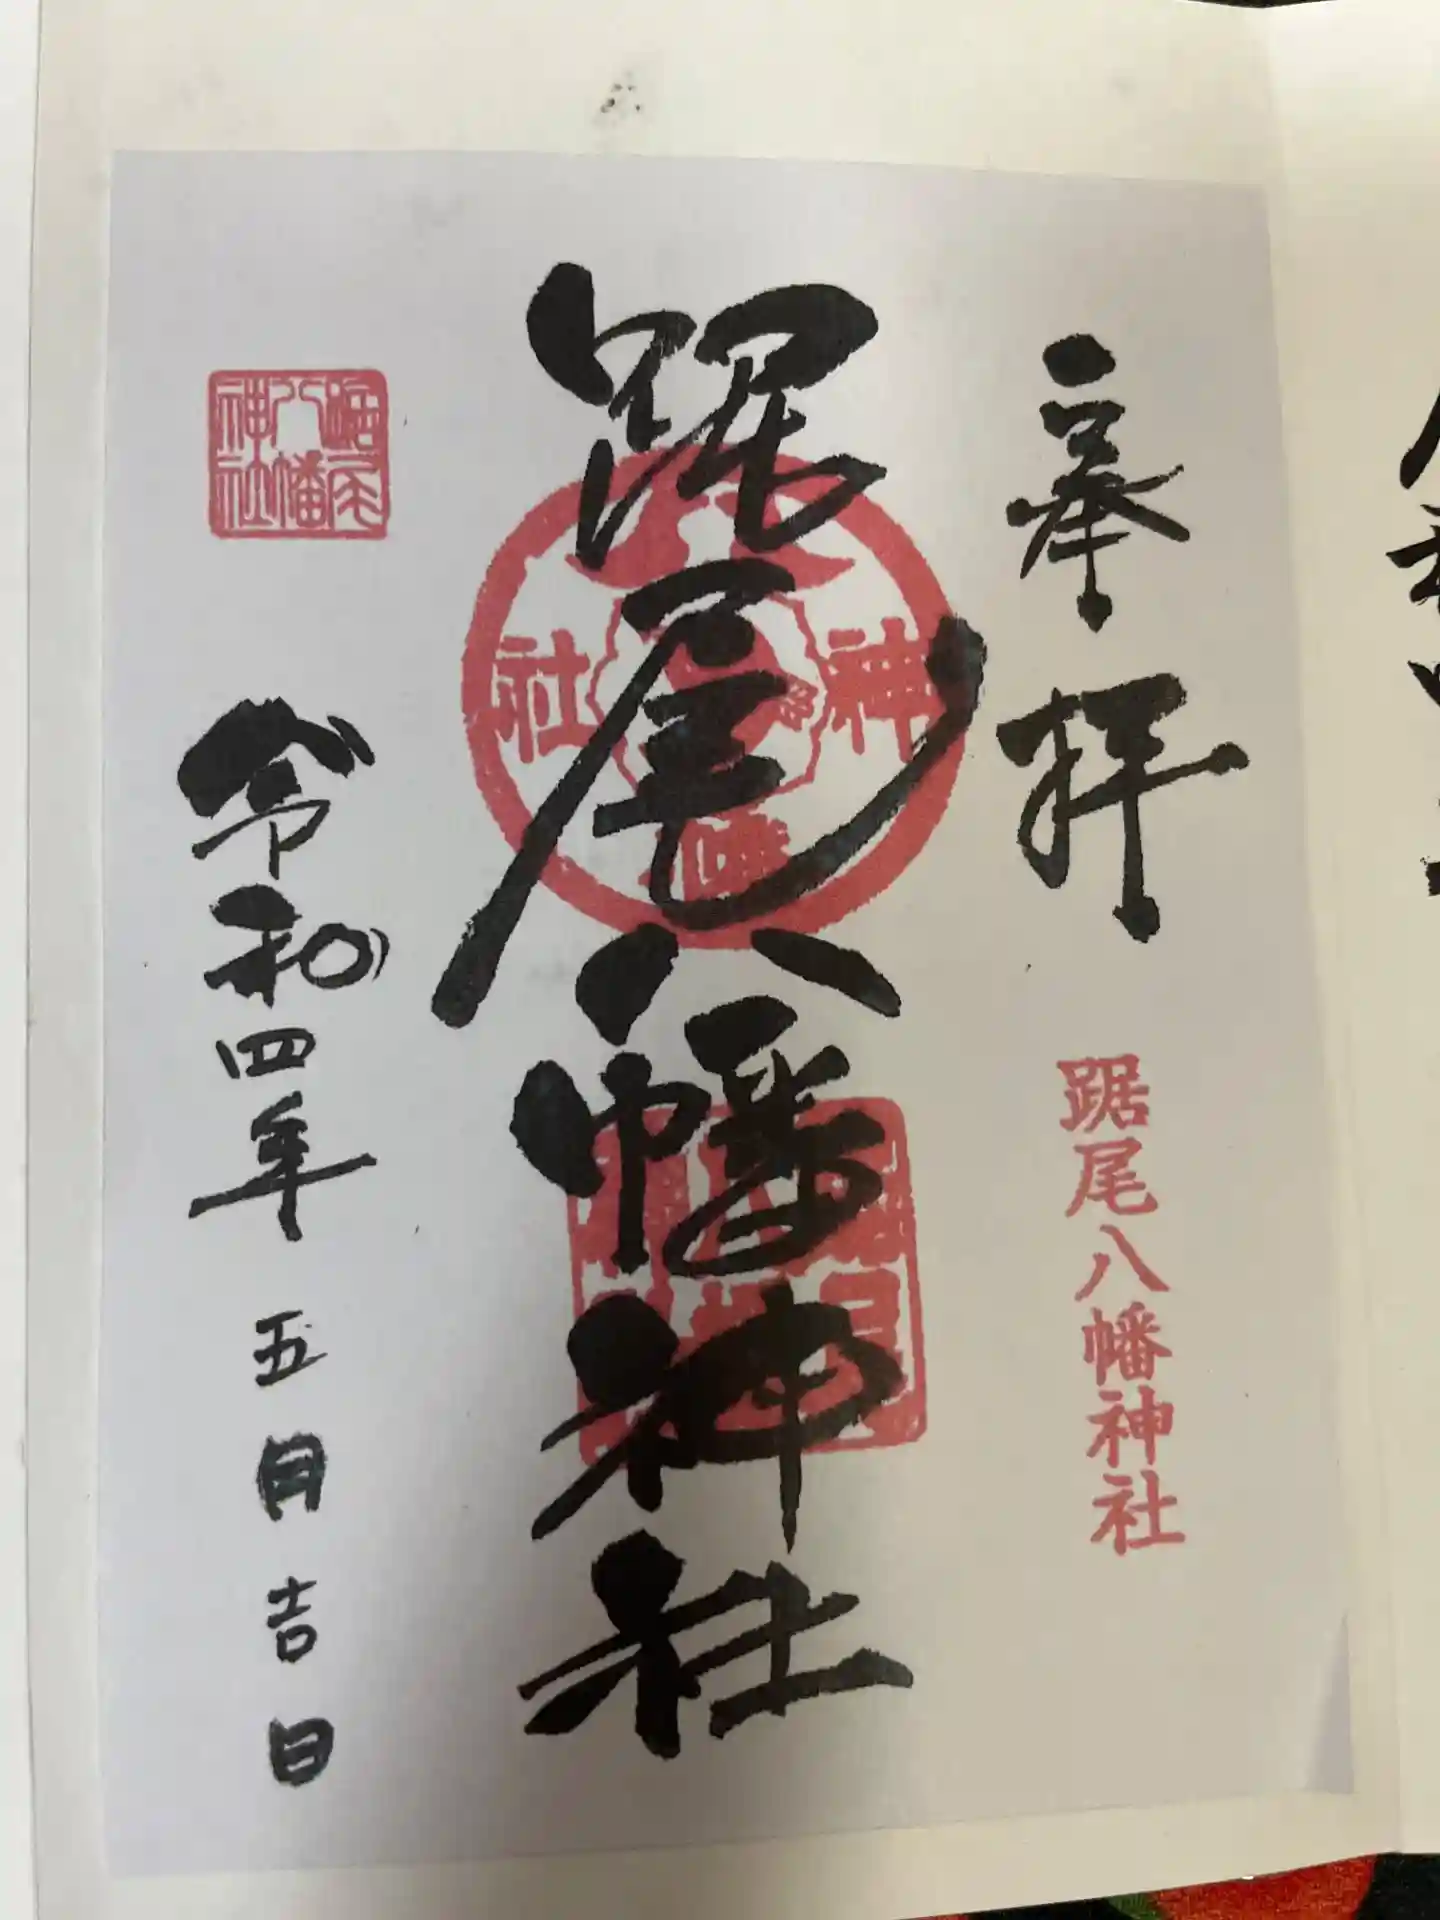 奉拝
踞尾八幡神社
踞尾八幡神社
神
社
八幡
踞尾八幡神社
令和四年 五月吉日
踞尾八幡神社